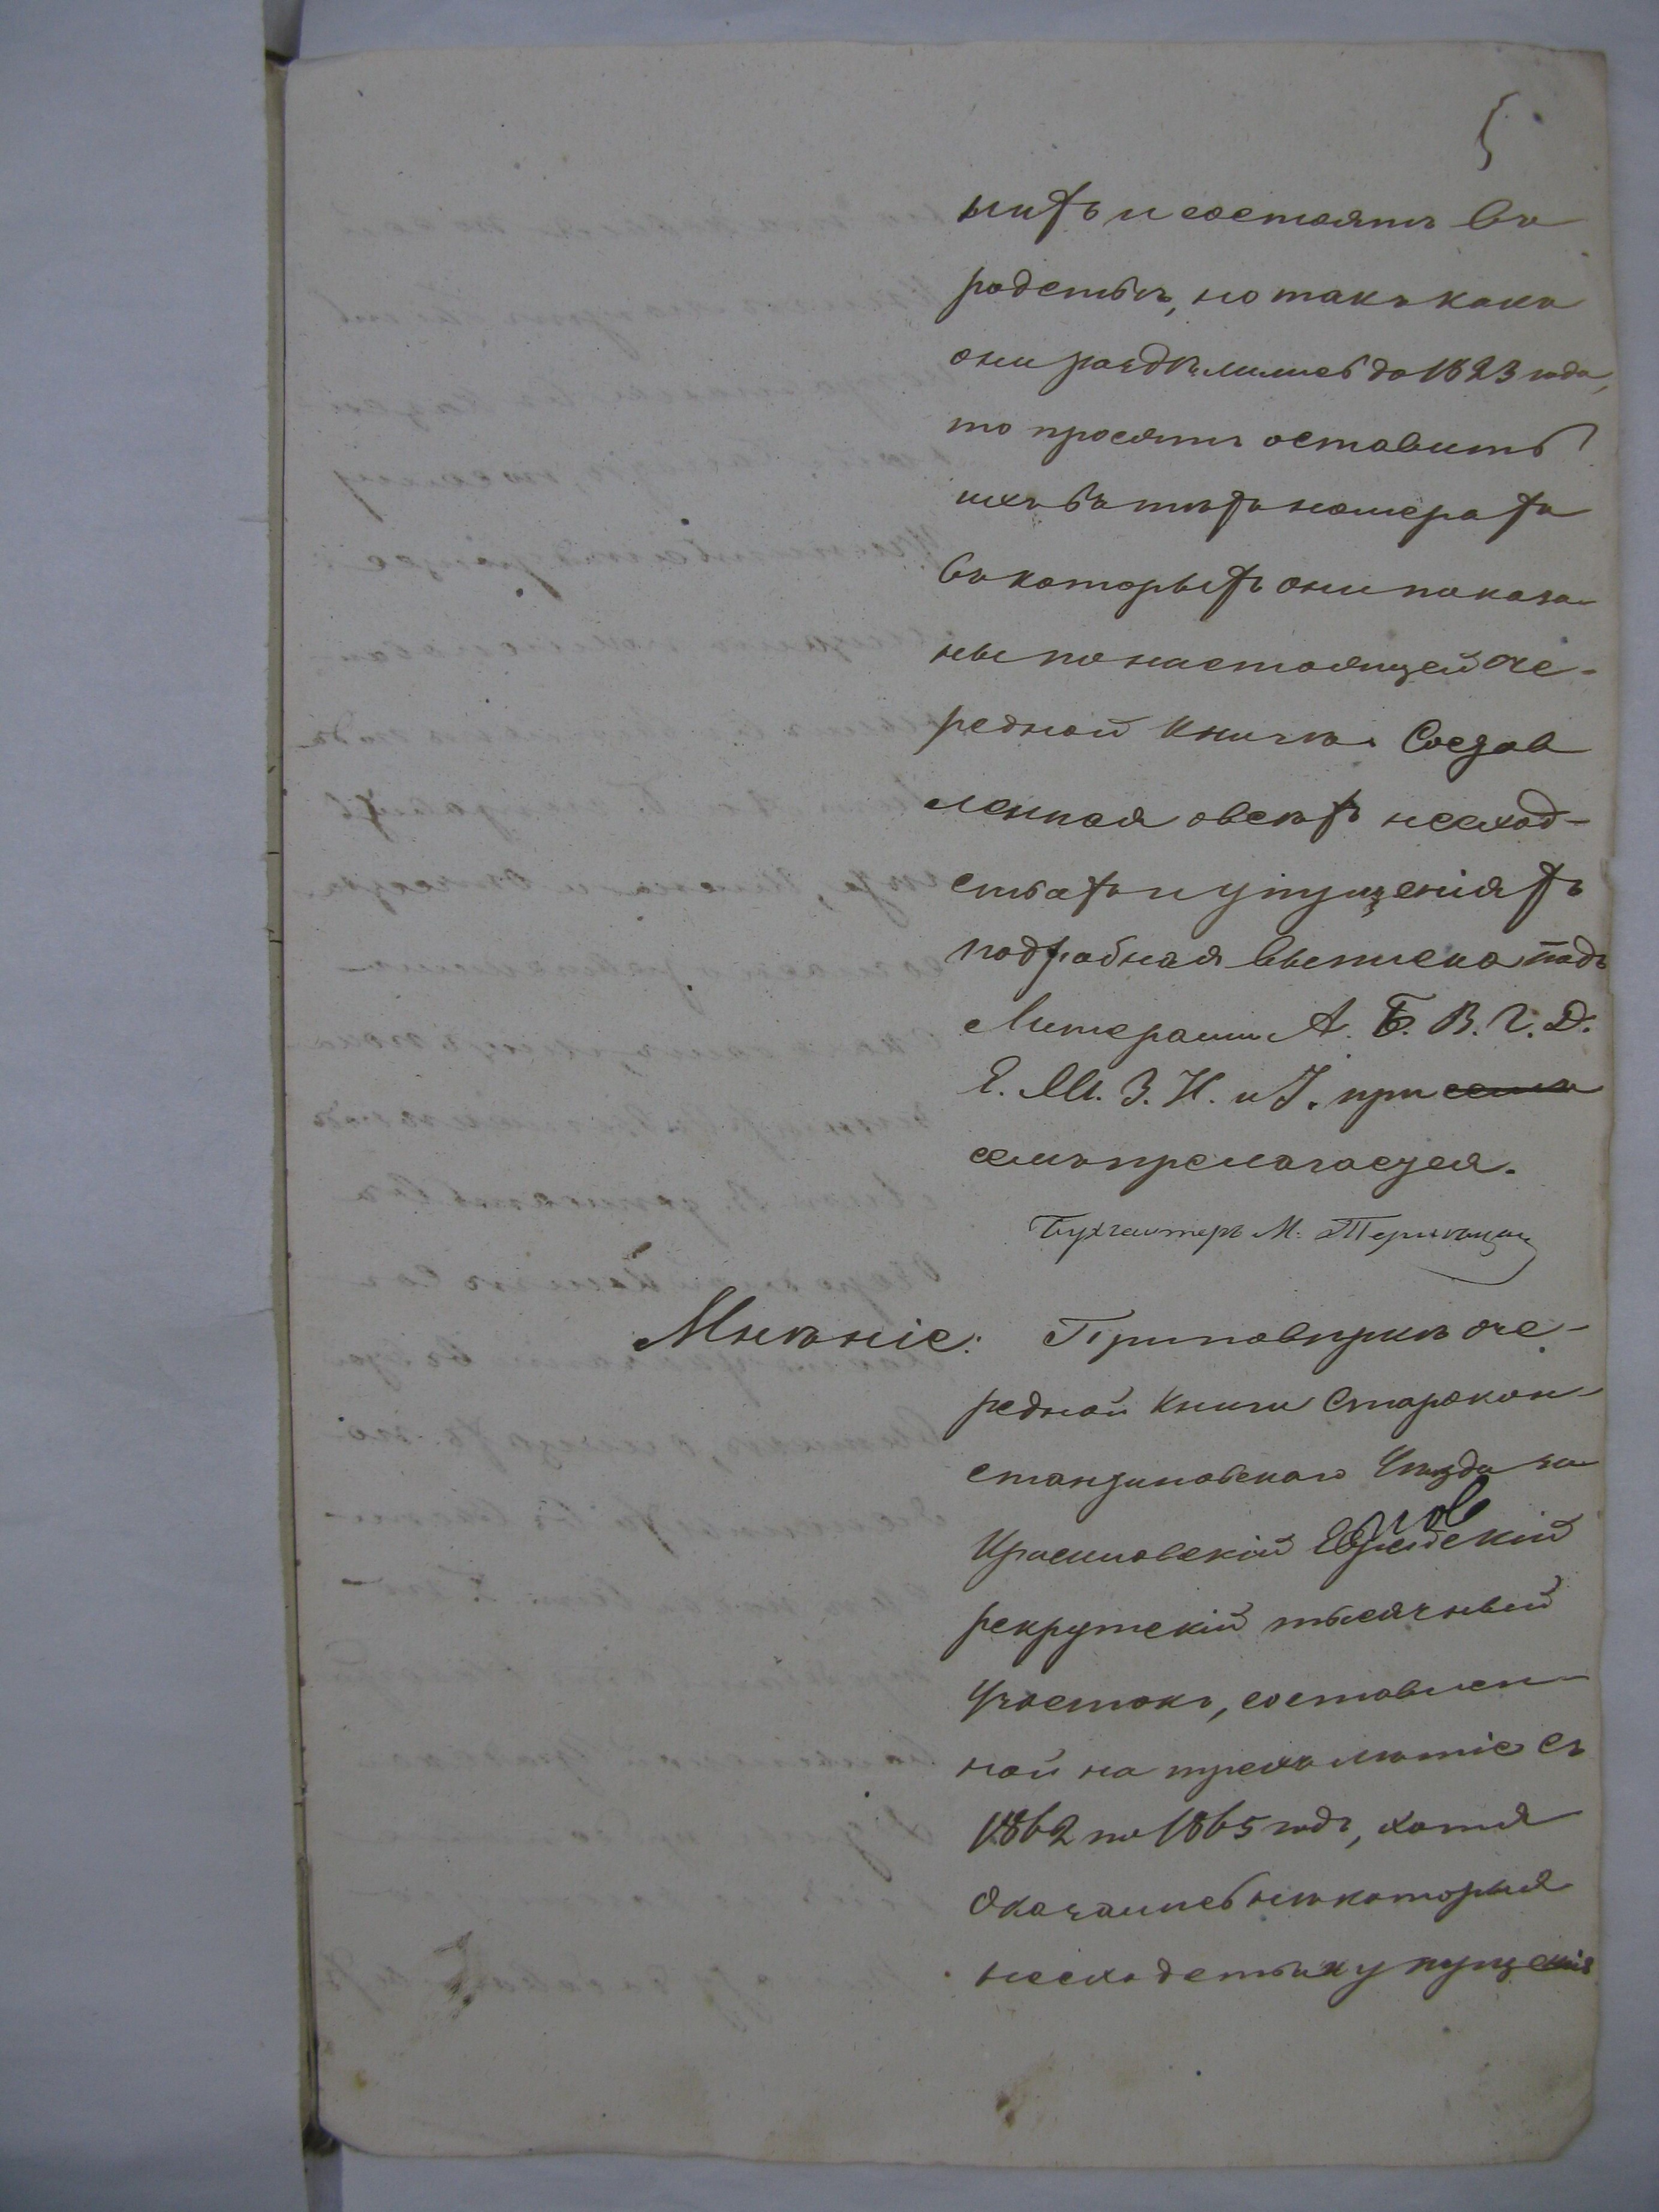 5
нихъ и состоятъ въ
родствѣ, но такъ какъ
они раздѣлились до 1823 года,
то просятъ оставить
ихъ въ тѣхъ номерахъ
въ которыхъ они показа-
ны по настоящей оче-
редной книгѣ. Состав
ленная о всѣхъ несход-
ствахъ и упущеніяхъ
подробная выписка подъ
Литерами А. Б. В. Г. Д.
Е. Ж. З. И. и І. при семъ
семъ прелагается.
Бухгалтеръ М.
Мнѣніе: При повѣркѣ оче-
редной книги Старокон-
стантиновскаго Уѣзда за
Красиловскій
рекрутскій тысячный
Участокъ, составлен-
ной на трехъ лѣтіе съ
1862 по 1865 годъ, хотя
Оказались нѣкоторыя
несходства и упущенія